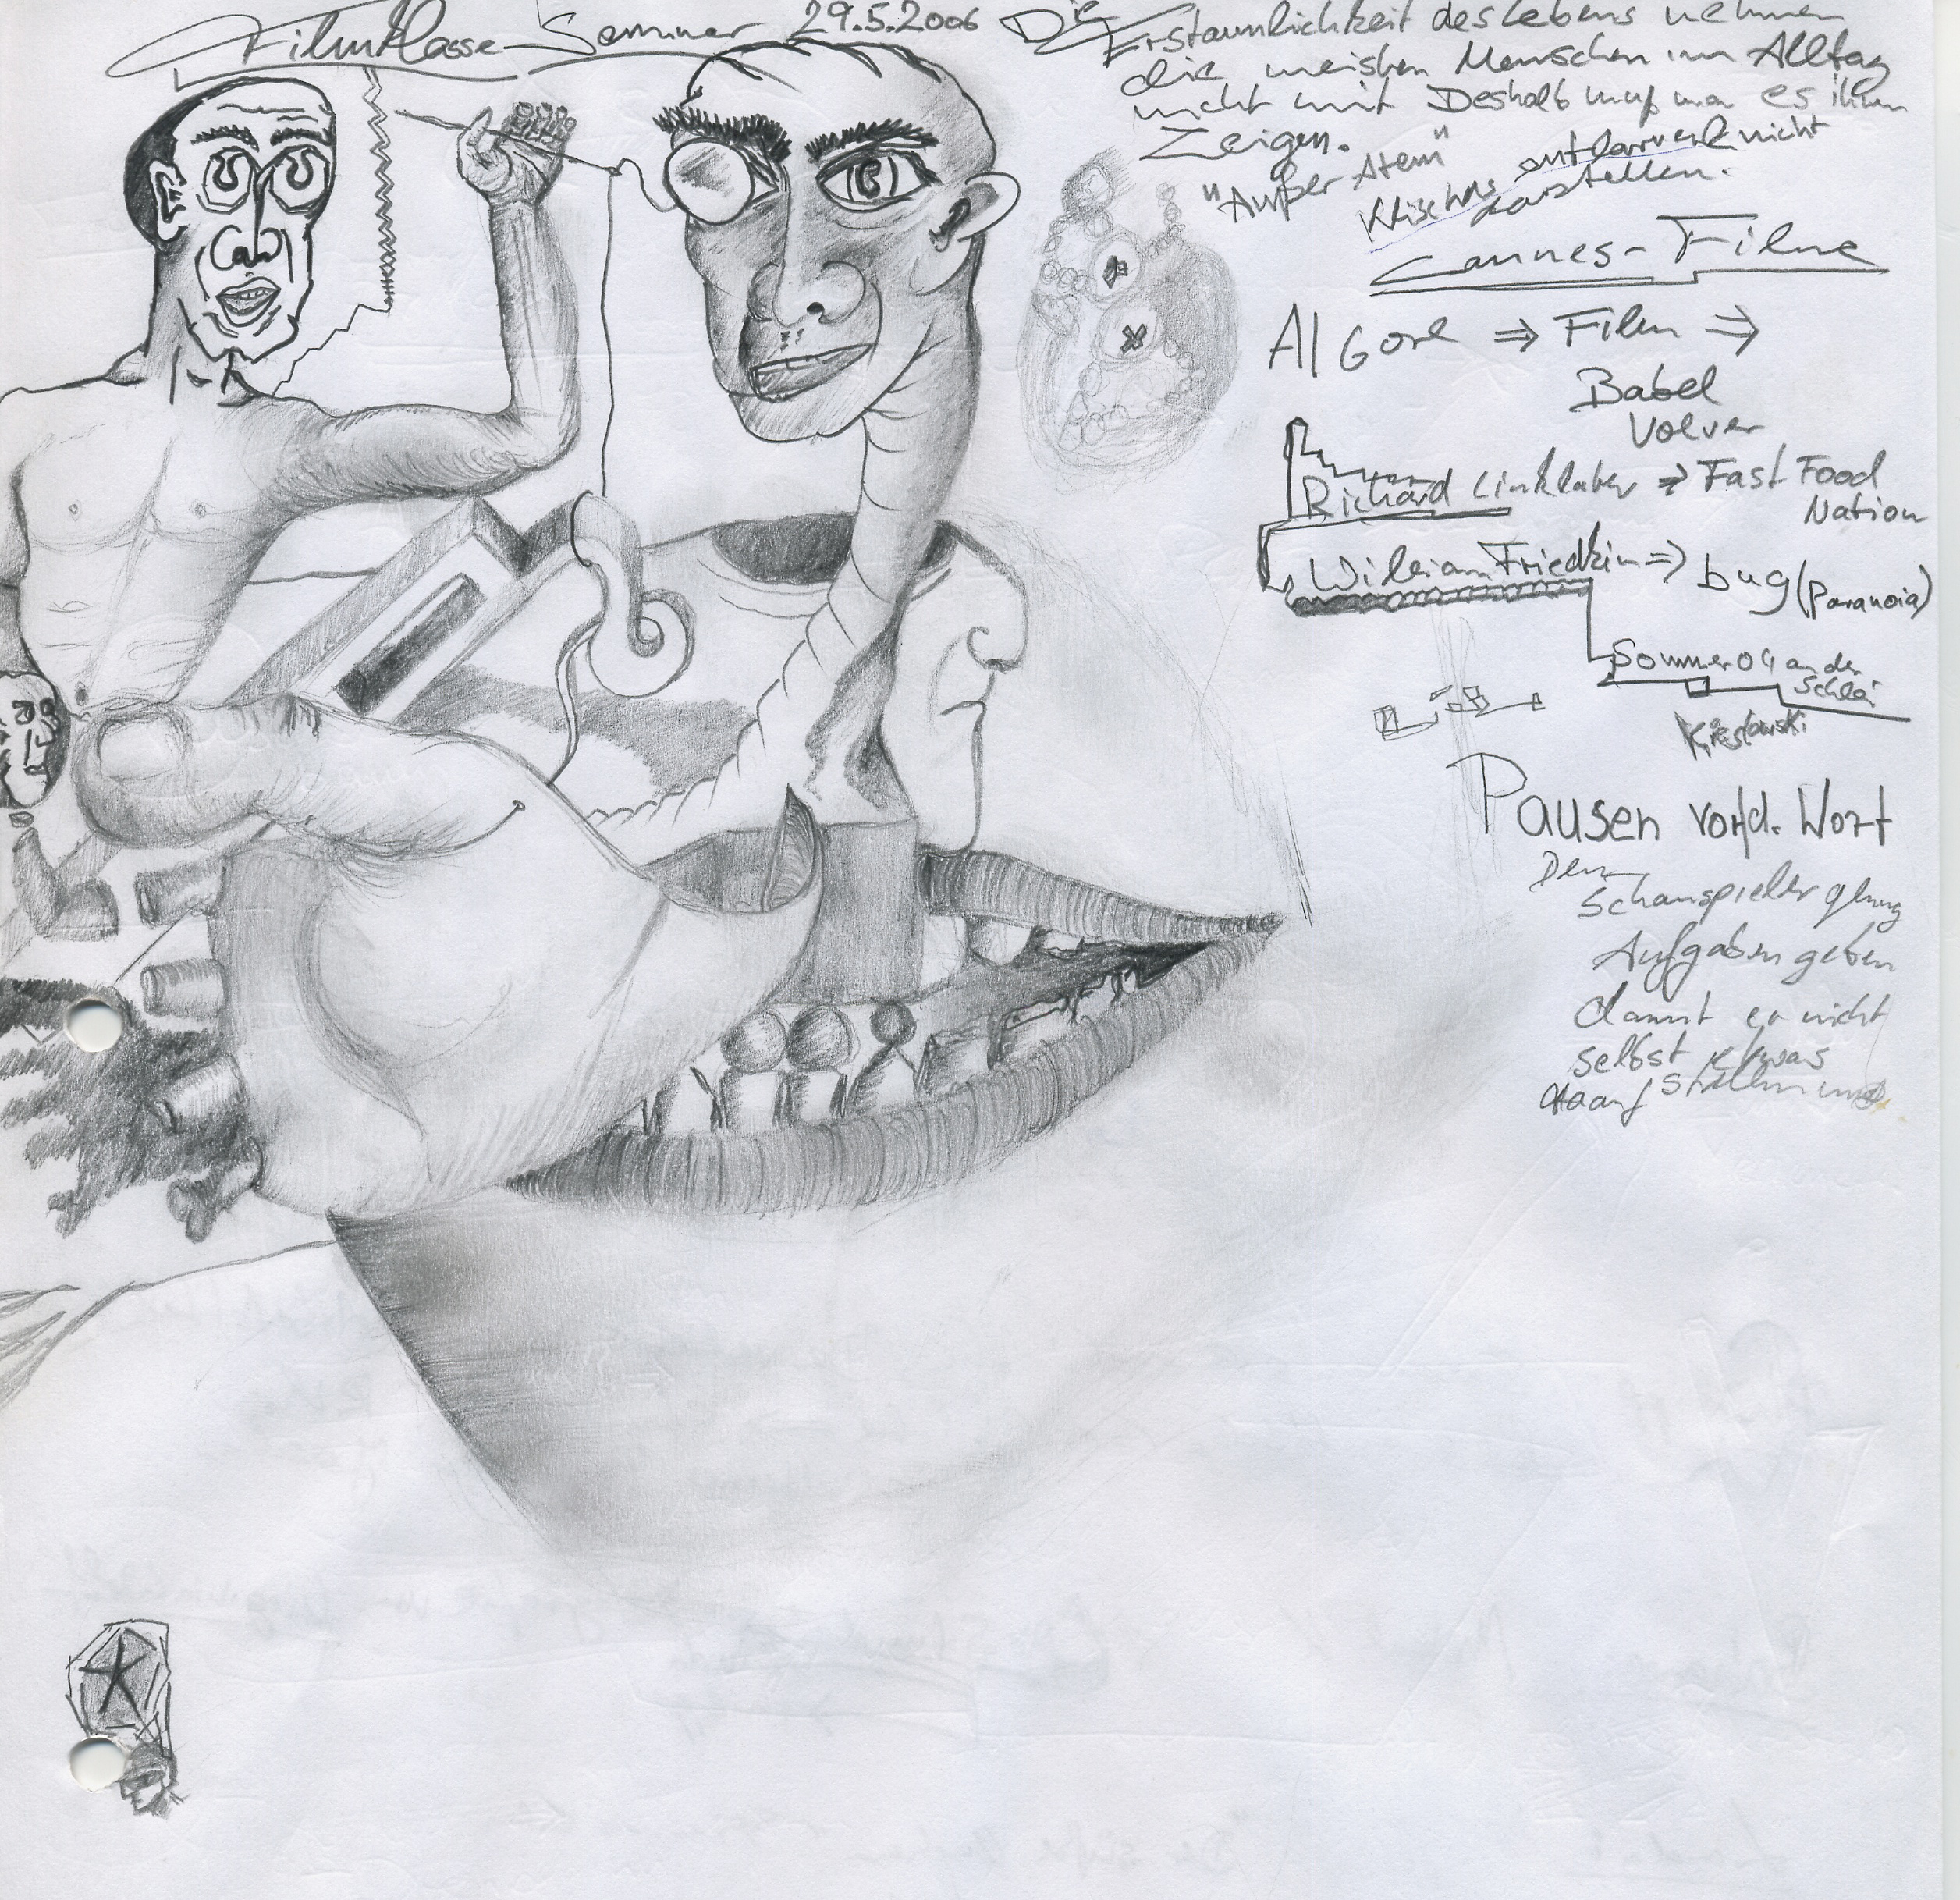 Filmklasse - Seminar 29.5.2006
Die Erstaunlichkeit des Lebens nehmen
die meisten Menschen im Alltag
nicht mit Deshalb muß man es ihnen
Zeigen.
"Außer Atem"
entlarven & nicht
darstellen.
Cannes - Filme
Al Gore ⇒ Film ⇒
Babel
Volver
Richard Linklater ⇒ Fast Food
Nation
William Friedkin ⇒ bug (Paranoia)
Sommer 04 an der
Schlei
Kieslowski
Pausen vor d. Wort
Dem
Schauspieler genug
Aufgaben geben
damit er nicht
selbst etwas